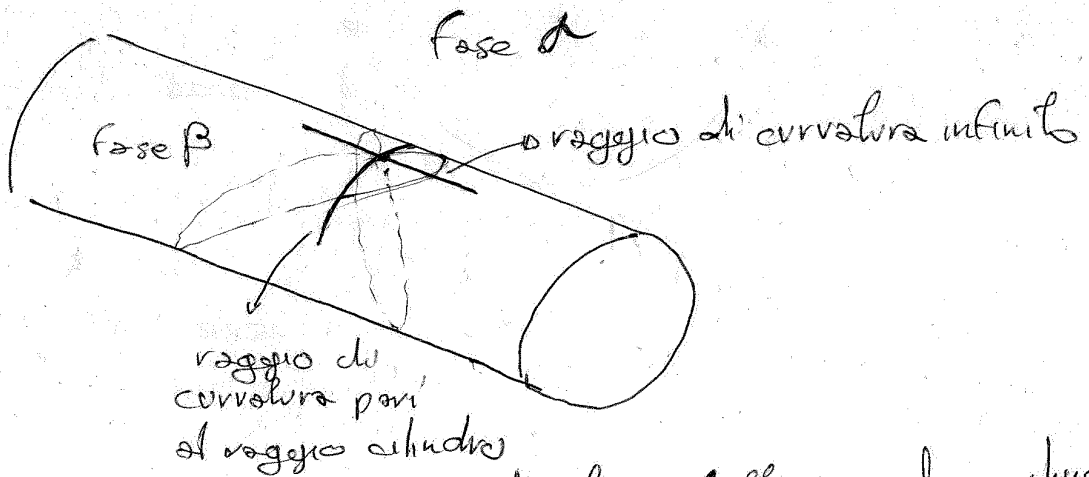 fase α
fase β
raggio di curvatura infinito
raggio di
curvatura pari
al raggio cilindro